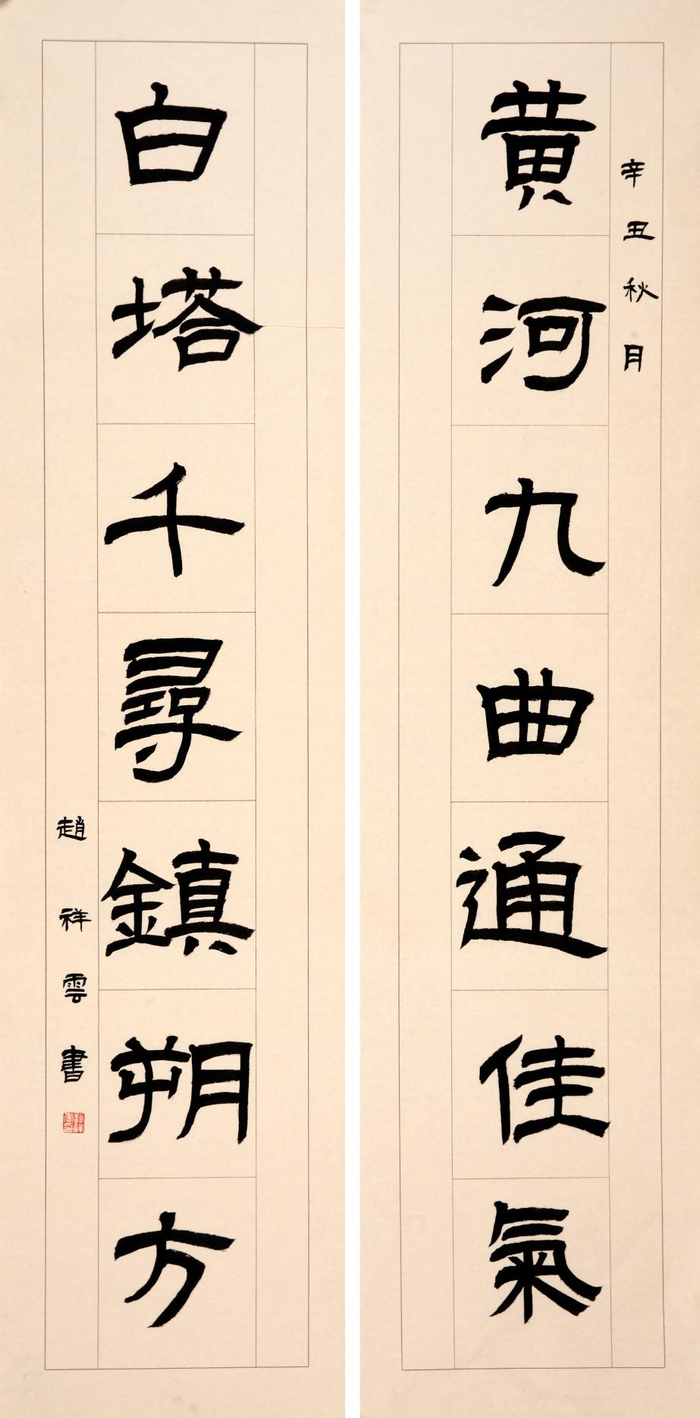 辛丑秋月
黃河九曲通佳氣
白塔千尋鎮朔方
趙祥雲書